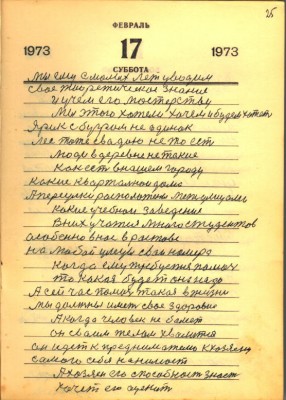 25
ФЕВРАЛЬ
1973 17 1973
СУББОТА
мы ему с малых лет уводим
свое творческое знание
и учем его мастерству
Мы этого хотели хочем и будем хотет
Ярик с бугром не одинак
Лес тоже
Люди в деревне не такие
Как ест в нашем городу
какие квартал или дома
А переулки расположены меж улицами
Какие учебное заведение
В них учатся много студентов
особенно в нас в ростове
на любой улеце свои номера
Когда ему требуется помощ
то какая будет она
А сейчас помощ такая в жизни
мы должны имет свое здоровие
А когда человек не болеет
он своим телом хвалится
он идет к предпринимателю к хозяену
самого себя нанимает
А хозяен его способност знает
Хочет его оценит